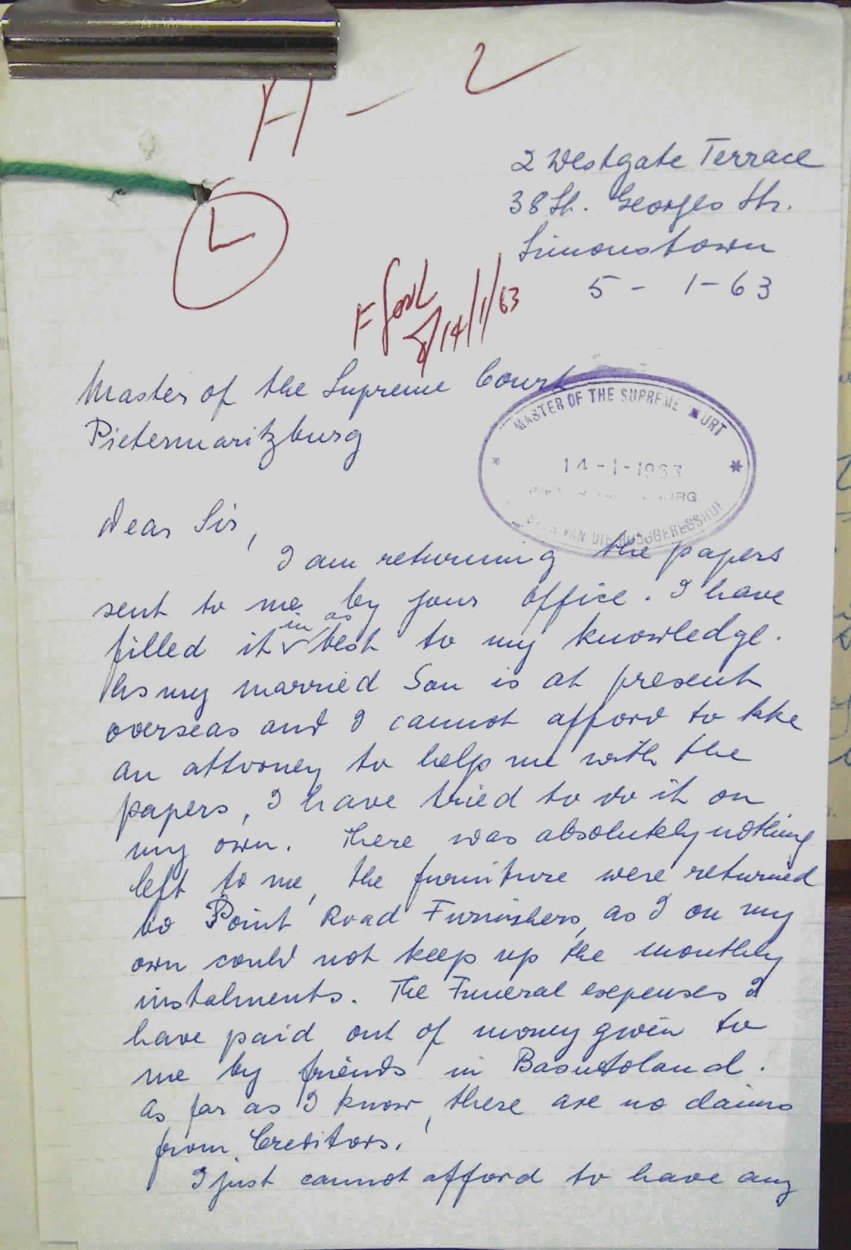 H - 2
2 Westgate Terrace
38 St. Georges Str.
Simonstown
5 - 1-63
L
14/1/63
Master of the Supreme Court
Pietermaritzburg
MASTER OF THE SUPREME COURT
14-1-1963
VAN DIE HOOGGEREGSHOF
Dear Sir,
I am returning the papers
sent to me by your office. I have
in as
filled it best to my knowledge.
As my married Son is at present
overseas and I cannot afford to take
an attorney to help me with the
papers, I have tried to do it on
my own. There was absolutely nothing
left to me, the furniture were returned
to Point Road Furnishers, as I on my
own could not keep up the monthly
instalments. The Funeral expenses I
have paid out of money given to
me by friends in Basutoland.
As far as I know, there are no claims
from Creditors.
I just cannot afford to have any